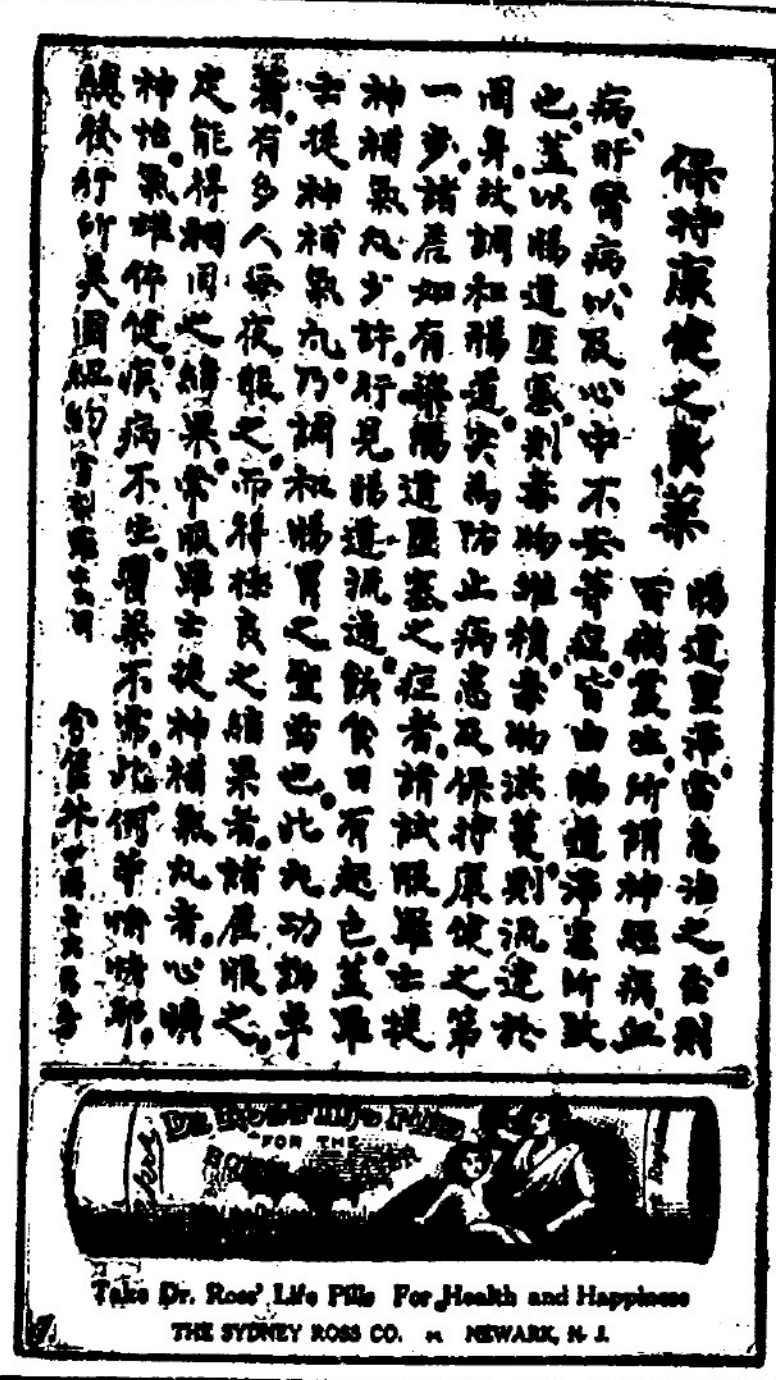 保持康健之藥
腸道壅滯。當急治之。否則
百病叢生。所謂神經病、血
病、肝腎病以及心中不安等症。皆由腸道滯塞所致
也。蓋以腸道壅塞。則毒物堆積。毒物滋蔓。則流達於
周身。故調和腸道。實為防止病患及保持康健之第
一步。諸君如有腸道壅塞之症者。請試服羅士提
神補氣丸少許。行見腸道流通。飲食日有起色。蓋羅
士提神補氣丸。乃調和腸胃之聖品也。此丸功効卓
著。有多人每夜服之。而得極良之結果者。諸君服之。
定能得相同之結果。常服羅士提神補氣丸者。心曠
神怡。氣雄体健。疾病不生。醫藥不需。此何等愉快耶。
總發行所美國紐約
DR. ROSS' LIFE PILLS
FOR THE
Take Dr. Ross' Life Pills For Health and Happiness
THE SYDNEY ROSS CO. NEWARK, N. J.